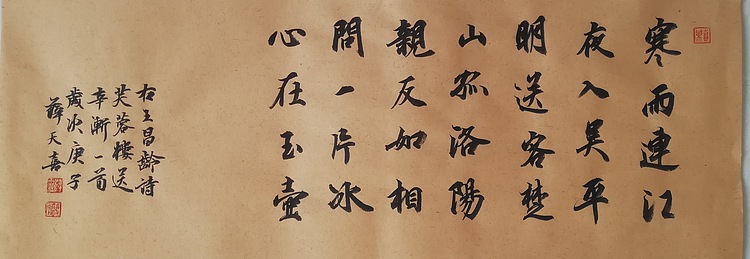 寒雨連江
夜入吳平
明送客楚
山孤洛陽
親友如相
問一片冰
心在玉壺
右王昌齡詩
芙蓉樓送
辛漸一首
歲次庚子
薛天喜